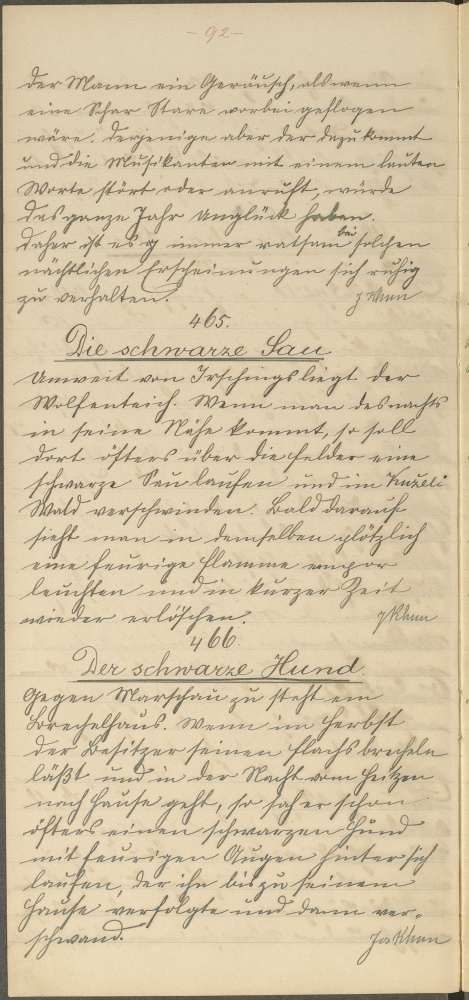 - 92 -
der Mann ein Geräusch, als wenn
eine Schar Stare vorbei geflogen
wäre. Derjenige aber der dazu kommt
und die Musikanten mit einem lauten
Worte stört oder anruft, würde
das ganze Jahr Unglück haben.
Daher ist es immer ratsam bei solchen
nächtlichen Erscheinungen sich ruhig
zu verhalten.
465.
Die schwarze Sau
Unweit von Irschings liegt der
Wolfenteich. Wenn man des nachts
in seine Nähe kommt, so soll
dort öfters über die Felder eine
schwarze Sau laufen und im Kuželi
Wald verschwinden. Bald darauf
sieht man in demselben plötzlich
eine feurige Flamme empor
leuchten und in kurzer Zeit
wieder erlöschen.
466.
Der schwarze Hund
Gegen Marschau zu steht ein
Brechelhaus. Wenn im Herbst
der Besitzer seinen Flachs brecheln
läßt und in der Nacht vom Heitzen
nach Hause geht, so sah er schon
öfters einen schwarzen Hund
mit feurigen Augen hinter sich
laufen, der ihn bis zu seinem
Hause verfolgte und dann ver-
schwand.